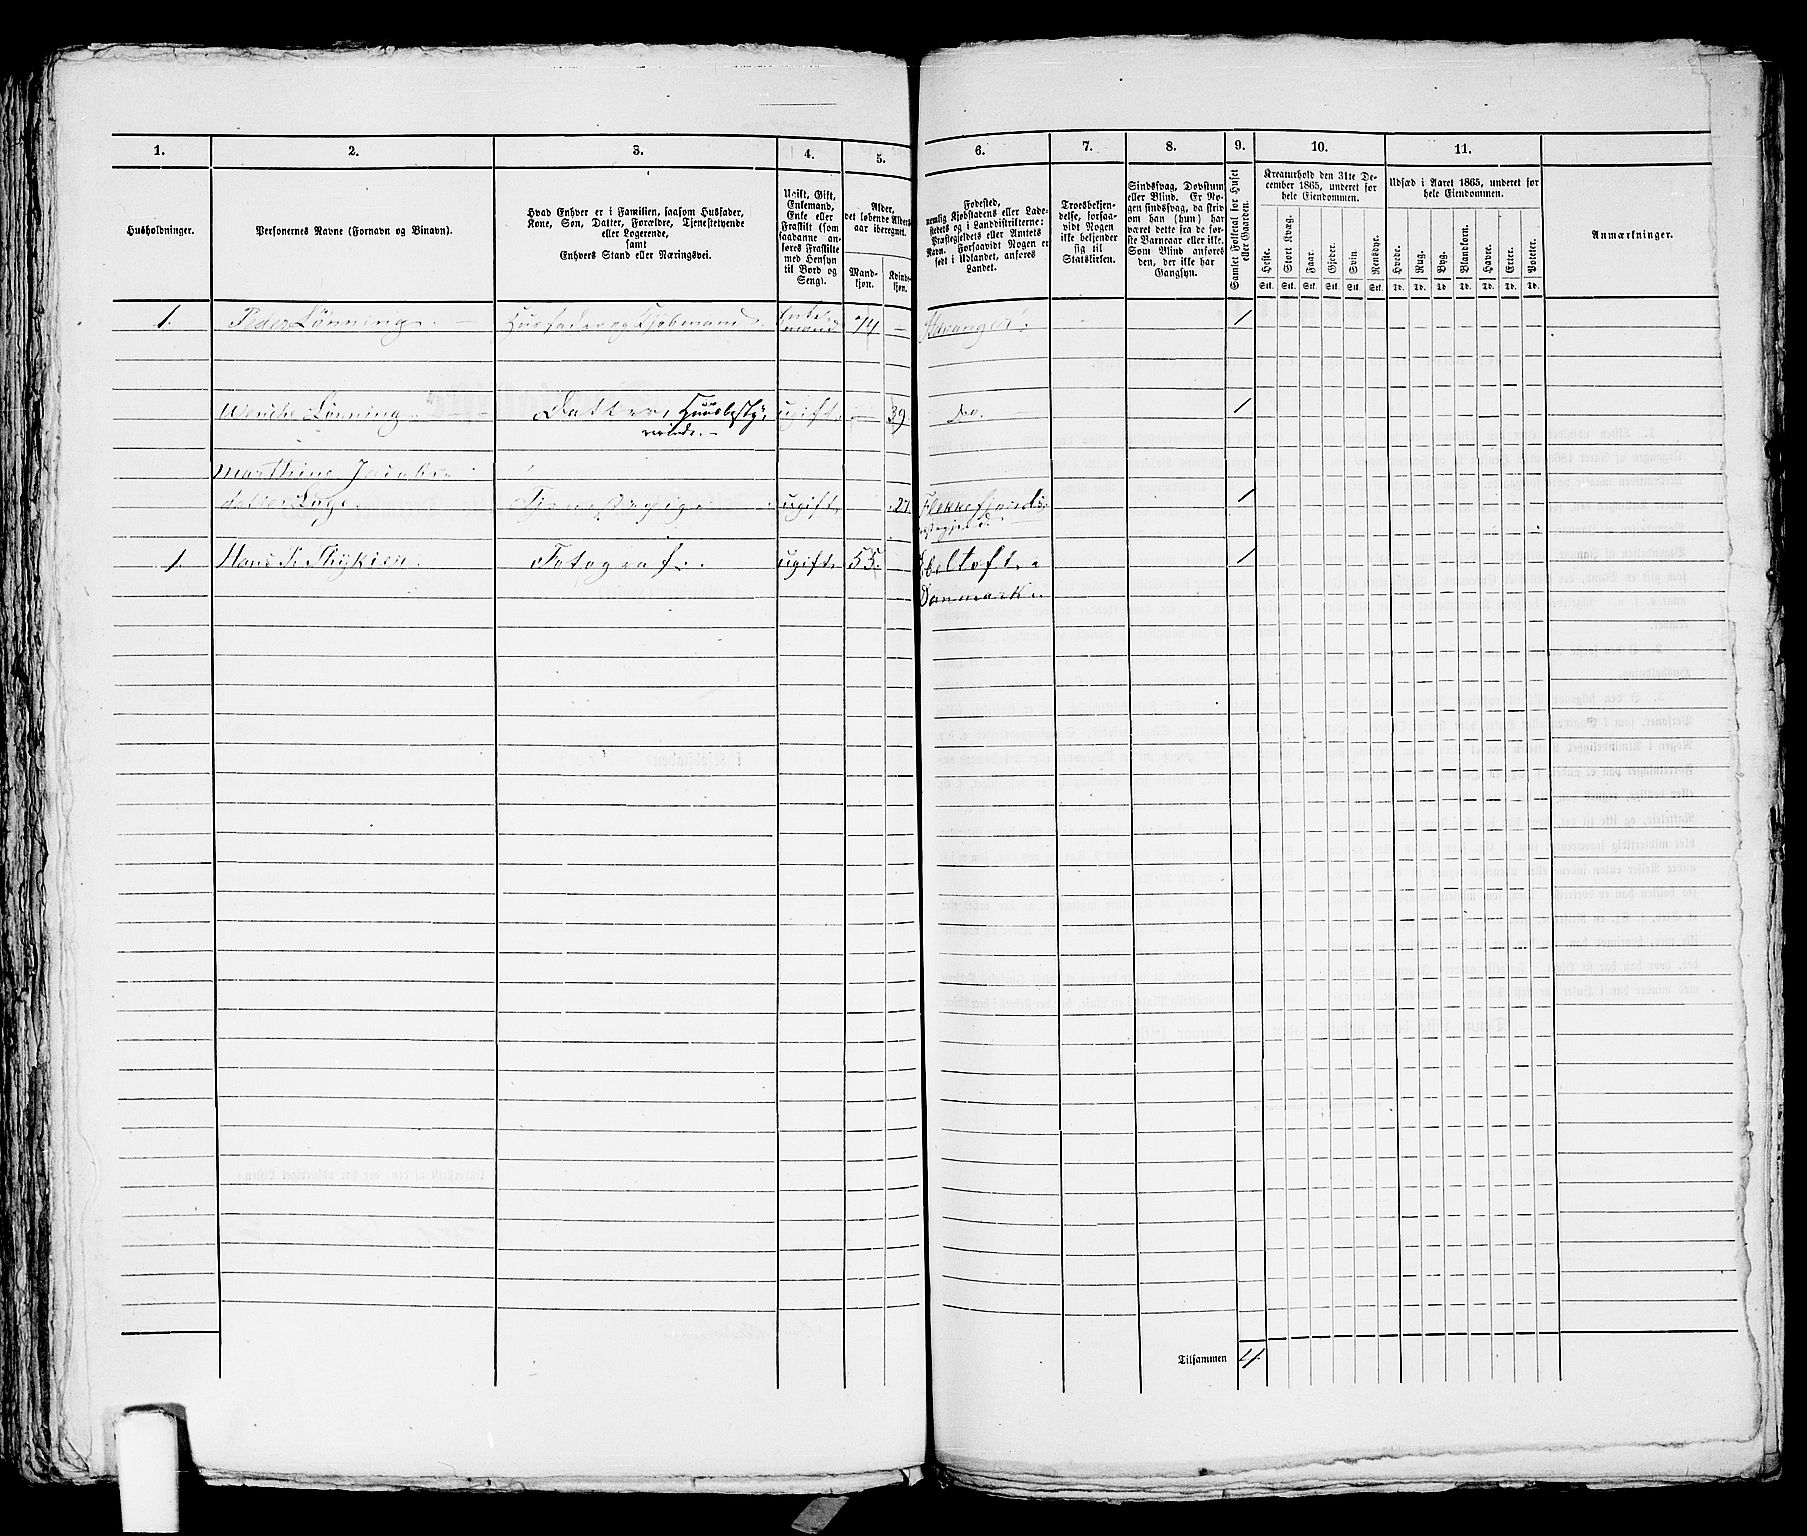 1. 2. 3. 4. 5. 6. 7. 8. 9. 10. 11.
Husholdninger.
Personernes Navne (Fornavn og Binavn).
Hvad Enhver er i Familien, saasom Husfader,
Kone, Søn, Datter, Forældre, Tjenestetyende
eller Logerende,
samt
Enhvers Stand eller Næringsvei.
Ugift, Gift,
Enkemand,
Enke eller
Fraskilt (som
saadanne an-
føres Fraskilte
med Hensyn
til Bord og
Seng).
Alder,
det løbende Alders-
aar iberegnet.
Mand-
kjøn.
Kvind-
kjøn.
Fødested,
nemlig Kjøbstadens eller Lade-
stedets og i Landdistrikterne:
Præstegjeldets eller Amtets
Navn. Forsaavidt Nogen er
født i Udlandet, anføres
Landet.
Troesbekjen-
delse, forsaa-
vidt Nogen
ikke bekjender
sig til
Statskirken.
Sindssvag, Døvstum
eller Blind. Er No-
gen sindssvag, da skriv
om han (hun) har
været dette fra de før-
ste Barneaar eller ikke.
Som Blind anføres
den, der ikke har
Gangsyn.
Samlet Folketal for Huset
eller Gaarden.
Kreaturhold den 31te De-
cember 1865, underet for
hele Eiendommen.
Heste. Stort Kvæg. Faar. Gjeder. Svin Rensdyr.
Stk. Stk. Stk. Stk. Stk. Stk.
Udsæd i Aaret 1865, underet for
hele Eiendommen.
Hvede. Rug. Byg. Blandkorn. Havre. Erter. Poteter.
Td. Td. Td. Td. Td. Td. Td.
Anmærkninger.
1. Peder Lønning. — Husfader og Kjøbmand. Enke-
mand 74 — Stavanger. 1
Wenche Lønning. — Datter, Huusbesty-
rerinde. — ugift. 39 do. 1
Marthine Jacobs-
datter Tjenestepige. ugift. 27. Flekkefjords
Præstgjeld. 1
1. Hans P. Fotograf. ugift. 55. Ebeltoft i
Danmark. 1
Tilsammen 4